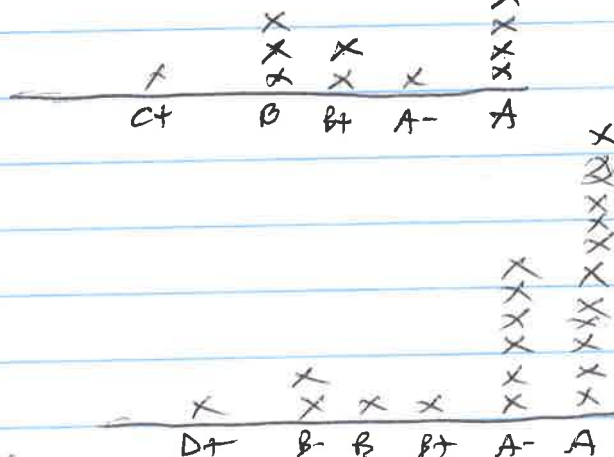 C+ B B+ A- A
D+ B- B B+ A- A